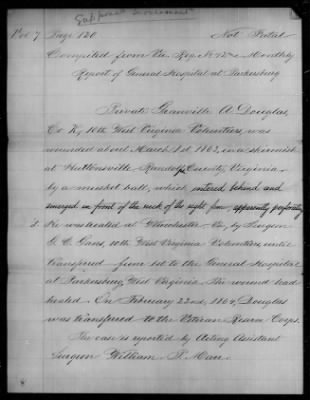 Vol 7 Page 120. Not Fatal
Compiled from
Report of General Hospital at Parkersburg
Private Granville A. Douglas,
Co K, 10th West Virginia Volunteers, was
wounded about March 1st 1863, in a skirmish
at Huttonsville Randolf County, Virginia,
by a musket ball, which entered behind and
emerged in front of the neck of the right femur, apparently perforating
it. He was treated at Winchester Va, by Surgeon
Gans, 10th West Virginia Volunteers, until
transferred from 1st to the General Hospital
at Parkersburg, West Virginia. The wound had
healed. On February 22nd, 1864, Douglas
was transferred to the Veteran Reserve Corps.
The case is reported by Acting Assistant
Surgeon William